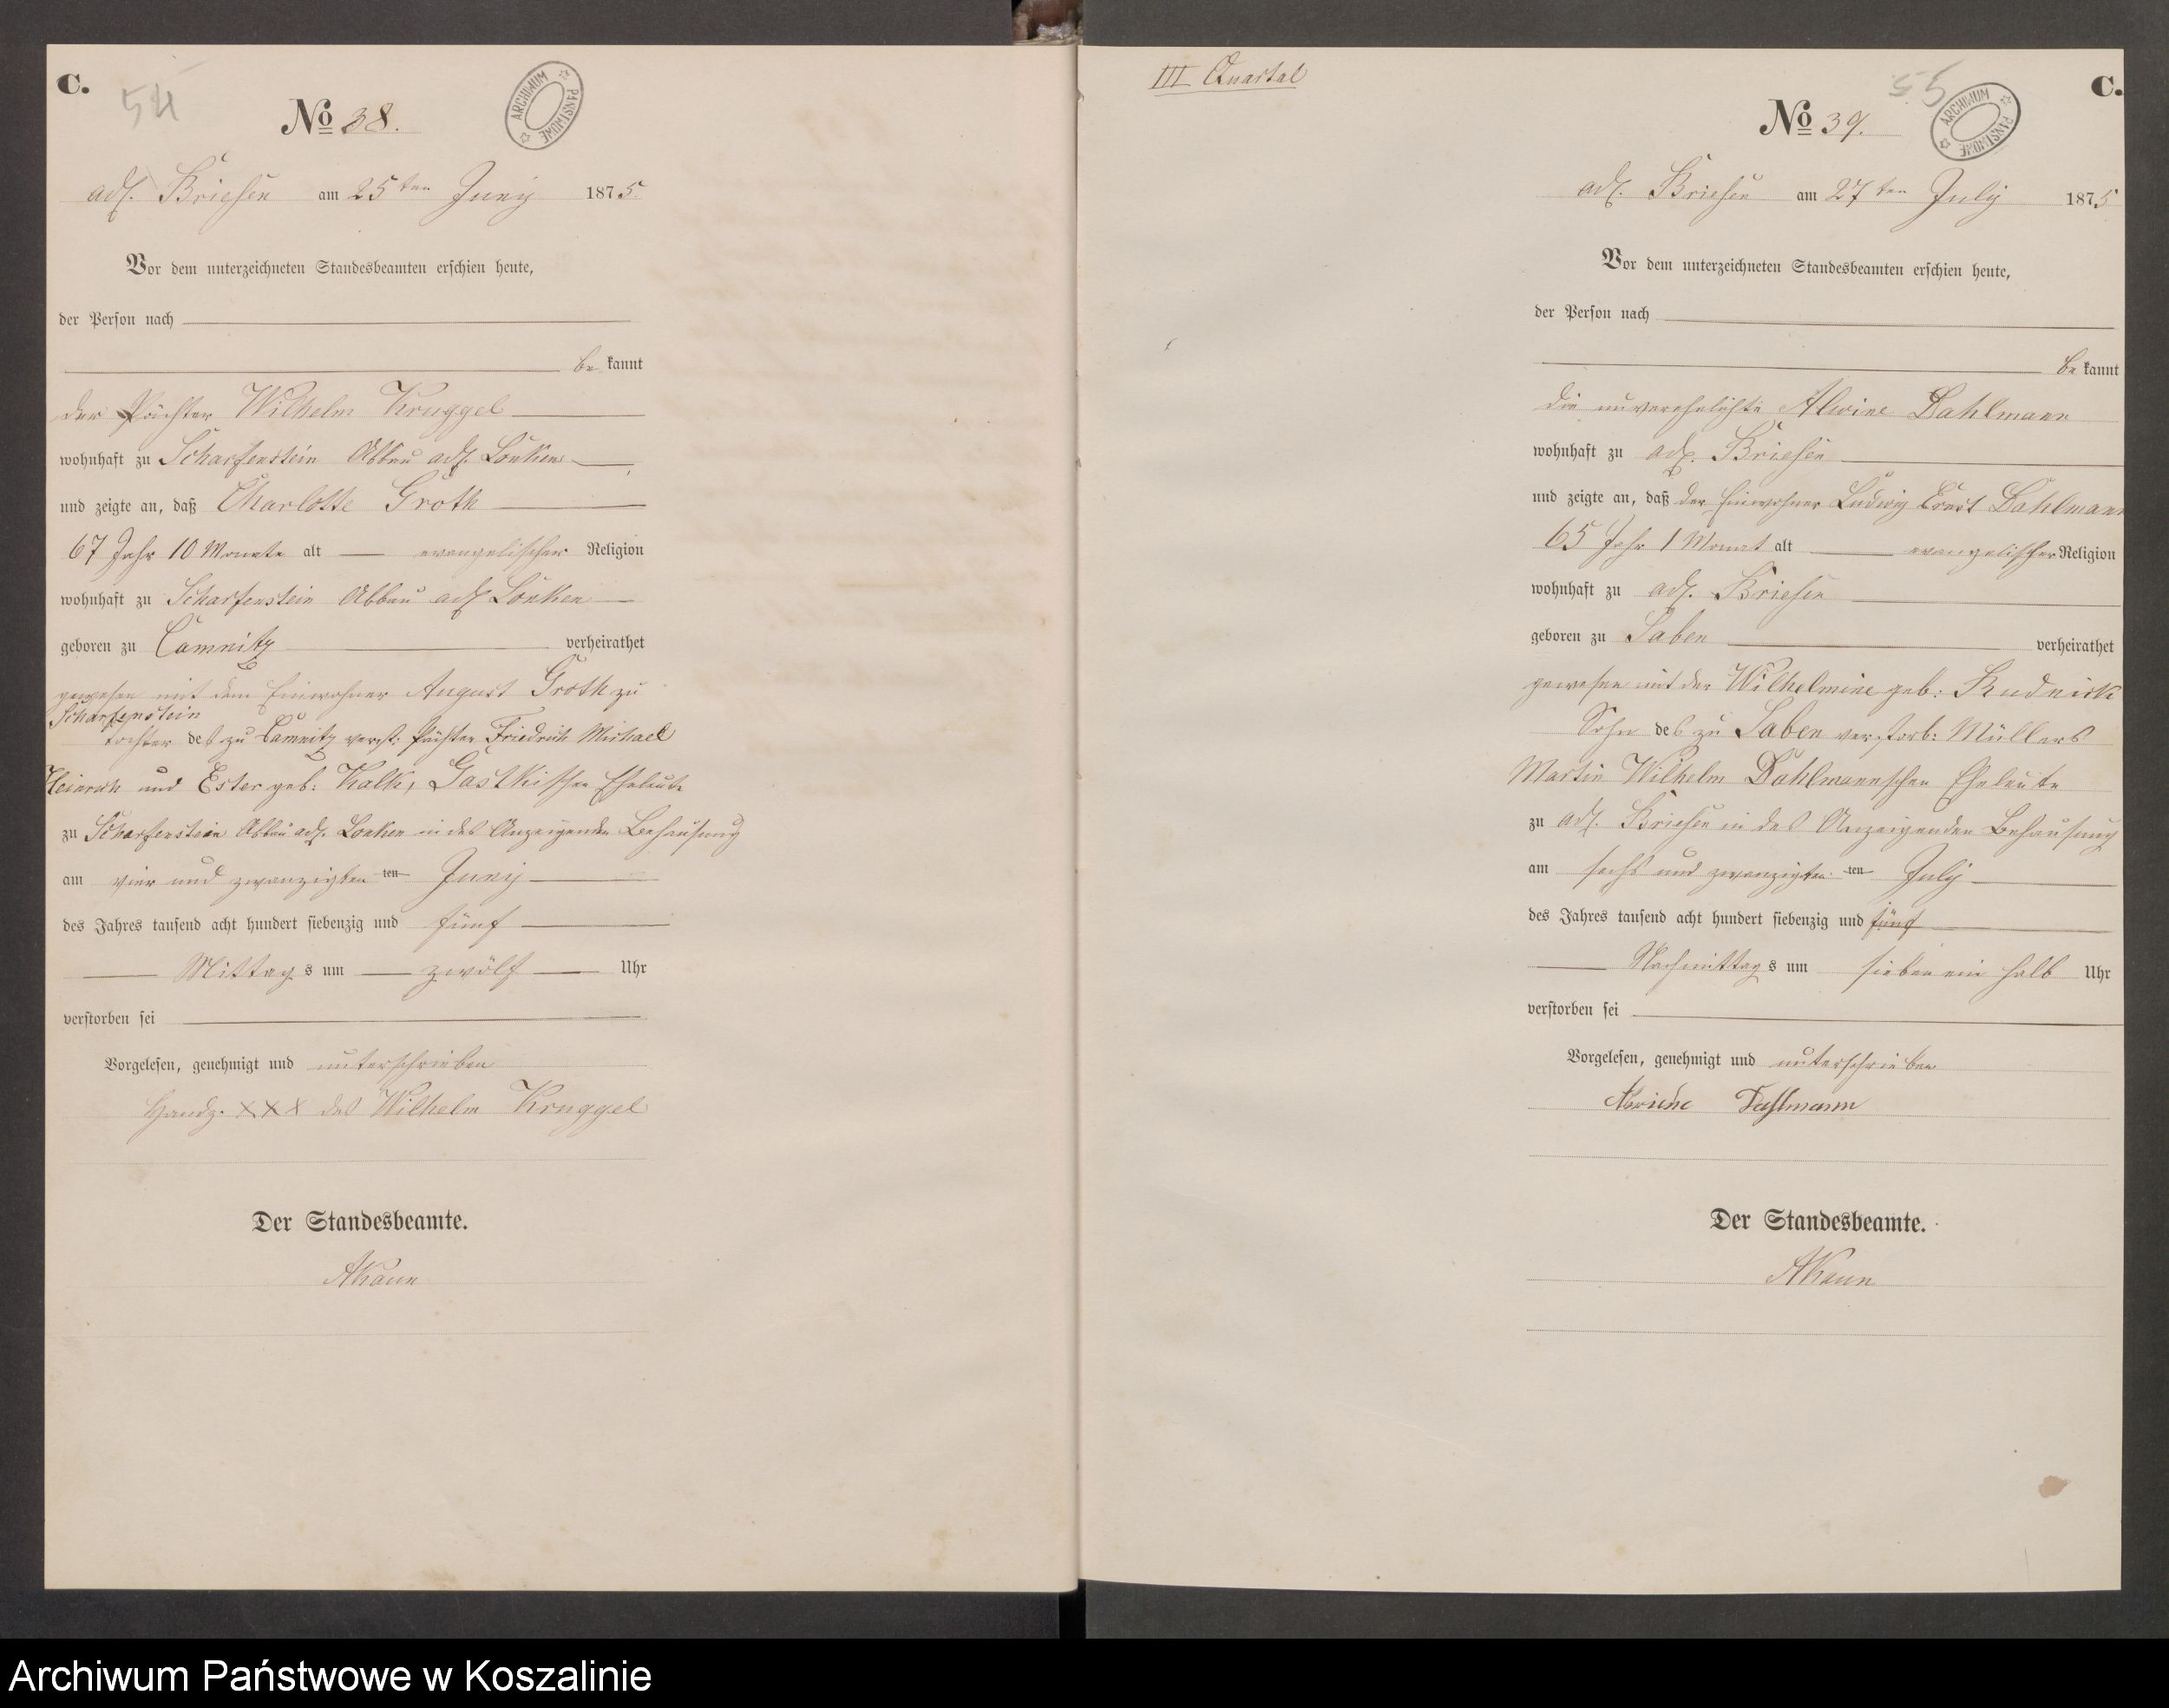 C.
54
ARCHIWUM PAŃSTWOWE
No 38.
adl. Briesen am 25ten Juny 1875.
Vor dem unterzeichneten Standesbeamten erschien heute,
der Person nach
be kannt
der Pächter Wilhelm Kruggel
wohnhaft zu Scharfenstein Abbau adl. Lonken
und zeigte an, daß Charlotte Groth
67 Jahr 10 Monate alt evangelischer Religion
wohnhaft zu Scharfenstein Abbau adl Lonken
geboren zu Camnitz verheirathet
gewesen mit dem Einwohner August Groth zu
Scharfenstein
Tochter des zu Camnitz verst: Pächter Friedrich Michael
Heinrich und Ester geb: Kalk, Eheleute
zu Scharfenstein Abbau adl. Lonken in des Anzeigenden Behausung
am vier und zwanzigten ten Juny
des Jahres tausend acht hundert siebenzig und fünf
Mittag s um zwölf Uhr
verstorben sei
Vorgelesen, genehmigt und unterschrieben
Handz. XXX des Wilhelm Kruggel
Der Standesbeamte.
III Quartal
55
C.
ARCHIWUM PAŃSTWOWE
No 39.
adl. Briesen am 27ten July 1875
Vor dem unterzeichneten Standesbeamten erschien heute,
der Person nach
be kannt
die unverehelichte Alwine Dahlmann
wohnhaft zu adl. Briesen
und zeigte an, daß der Einwohner Ludwig Ernst Dahlmann
65 Jahr 1 Monat alt evangelischer Religion
wohnhaft zu adl. Briesen
geboren zu Saben verheirathet
gewesen mit der Wilhelmine geb: Rudnick
Sohn des zu Saben verstorb: Müllers
Martin Wilhelm Dahlmannschen Eheleute
zu adl. Briesen in des Anzeigenden Behausung
am sechs und zwanzigten ten July
des Jahres tausend acht hundert siebenzig und fünf
Nachmittag s um sieben ein halb Uhr
verstorben sei
Vorgelesen, genehmigt und unterschrieben
Alwiene Dahlmann
Der Standesbeamte.
Archiwum Państwowe w Koszalinie